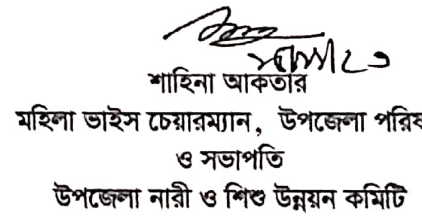 শাহিনা আকতার
মহিলা ভাইস চেয়ারম্যান, উপজেলা পরিষ
ও সভাপতি
উপজেলা নারী ও শিশু উন্নয়ন কমিটি